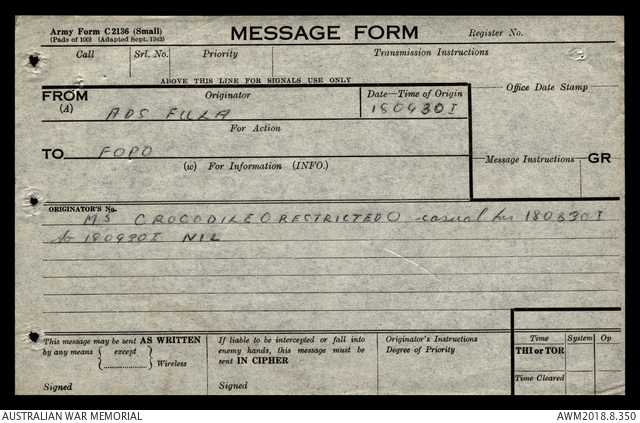 Army Form C2136 (Small)
(Pads of 100) (Adapted Sept. 1943)
MESSAGE FORM
Register No.
Call Srl. No. Priority Transmission Instructions
ABOVE THIS LINE FOR SIGNALS USE ONLY
FROM Originator Date—Time of Origin
(A) ADS FULLA 180930I
Office Date Stamp
For Action
TO FOPO
(w) For Information (INFO.)
Message Instructions GR
ORIGINATOR'S No.
MS CROCODILE () RESTRICTED () casual 180630I
to 180930I NIL
This message may be sent AS WRITTEN
by any means { except } Wireless
Signed
If liable to be intercepted or fall into
enemy hands, this message must be
sent IN CIPHER
Signed
Originator's Instructions
Degree of Priority
Time System Op
THI or TOR
Time Cleared
AUSTRALIAN WAR MEMORIAL AWM2018.8.350